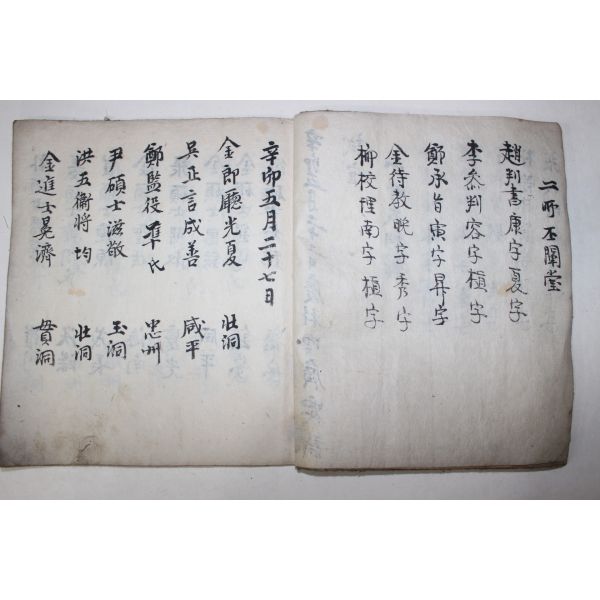 二所丕闡堂
趙判書康字夏字
李參判容字植字
鄭承旨寅字昇字
金待敎晩字秀字
柳校理南字植字
辛卯五月二十七日
金郎廳光夏 壯洞
吳正言成善 咸平
鄭監役 氏 忠州
尹碩士滋敬 玉洞
洪五衛將 均 壯洞
金進士晃濟 貫洞